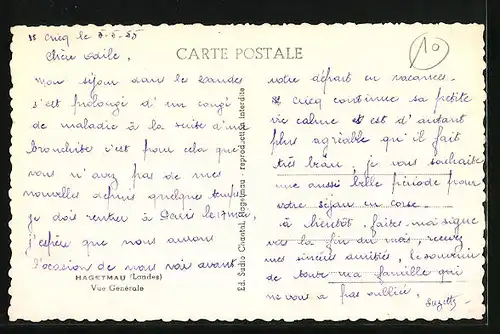 St Cricq le 7-5-55
CARTE POSTALE
10
Chère Odile,
mon séjour dans le Landes
s'est prolongé d'un congé
de maladie à la suite d'une
bronchite c'est pour cela que
vous n'avez pas de mes
nouvelles depuis quelque temps
je dois rentrer à Paris le 17 mai,
j'espère que nous aurons
l'occasion de nous voir avant
HAGETMAU (Landes)
Vue Générale
Ed. Sudio Chantal Hagetmau - reproduction interdite
votre départ en vacances.
St Cricq continue sa petite
vie calme et est d'autant
plus agréable qu'il fait
très beau, je vous souhaite
une aussi belle période pour
votre séjour en Corse.
à bientôt, faites-moi signe
vers la fin du mois, recevez
mes sincères amitiés, le souvenir
de toute ma famille qui
ne vous a pas oubliée,
Suzette